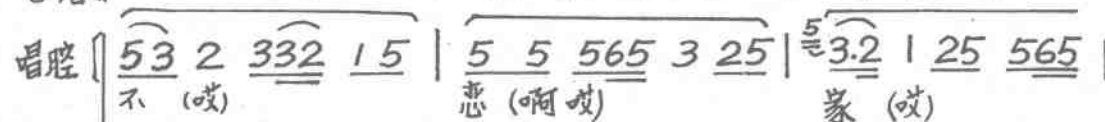 唱腔 53 2 332 15 | 5 5 565 3 25 | 5 3.2 1 25 565 |
不 (哎) 恋 (啊 哎) 家 (哎)